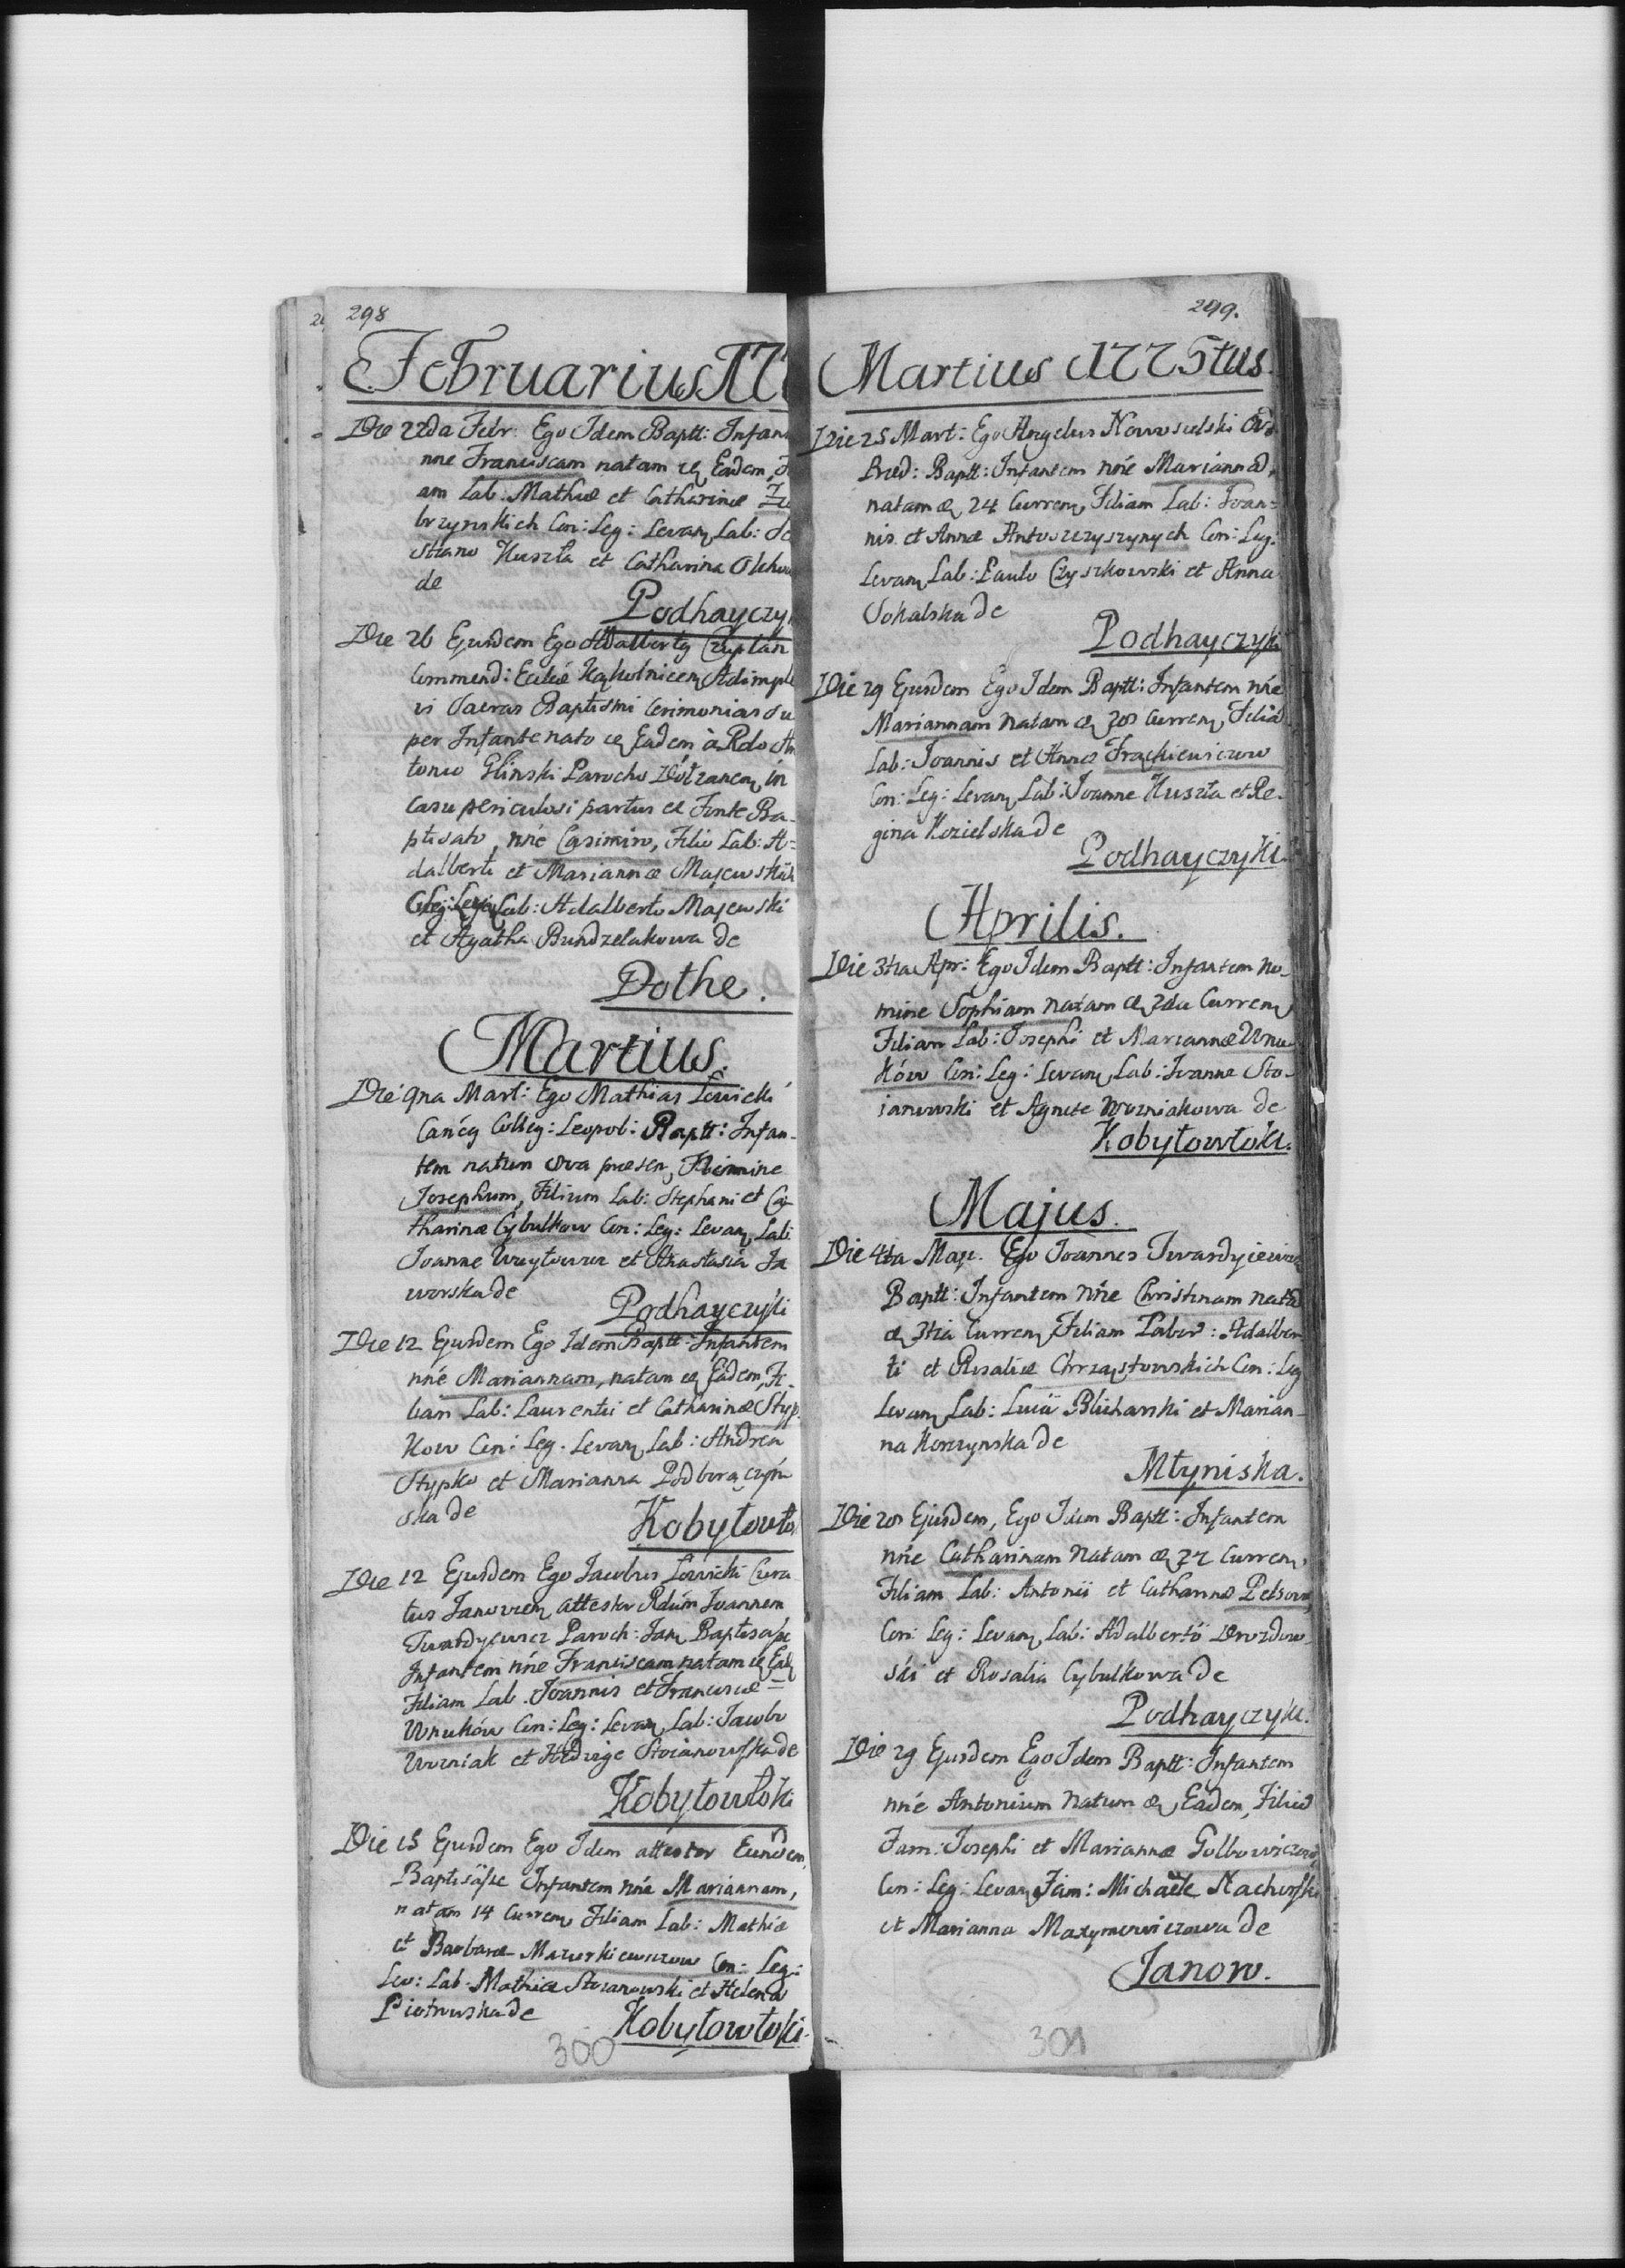 298
Februarius 177
Die 22da Febr. Ego Idem Baptt: Infan
nne Franciscam natam eq Eadem,
am Lab: Mathiæ et Catharinæ
brzynskich Con: Leg: Levanq Lab:
stiano Huszta et Catharina
de
Podhayczy
Die 26 Ejusdem Ego Adalbertq
Commend: Ecclie Adimple
vi Sacras Baptismi Cerimonias su
per Infante nato eq Eadem à Rdo An
tonio Glinski Parocho in
casu periculosi partus ex Fonte Ba-
ptisato, nne Casimiro, Filio Lab: A=
dalberti et Mariannæ Majewskich
Lab: Adalberto Majewski
et Agatha Bundzelakowa de
Dothe.
Martius.
Die 9na Mart: Ego Mathias Lewicki
Colleg: Leopol: Baptt: Infan-
tem natum 8va præsen, Nomine
Josephum, Filium Lab: Stephani et Ca
tharinæ Cybulkow Con: Leg: Levanq Lab:
Joanne et Anastasia Ja
worska de
Podhayczyki
Die 12 Ejusdem Ego Idem Baptt: Infantem
nne Mariannam, natam eq Eadem, Fi-
liam Lab: Laurentii et Catharinæ Styp-
kow Con: Leg. Levanq Lab: Andrea
Stypko et Marianna
ska de
Kobyłowło
Die 12 Ejusdem Ego Jacobus Lewicki Cura
tus attestor Rdum Joannem
Twardyewicz Paroch: Jan Baptisasse
Infantem nne Franciscam natam eq Ead
Filiam Lab. Joannis et Franciscæ =
Wnuków Con: Leg: Levanq Lab: Jacobo
Wozniak et Hedvige Stoianowska de
Kobyłowłoki
Die 15 Ejusdem Ego Idem attestor Eundem
Baptisasse Infantem nne Mariannam,
natam 14 Curren Filiam Lab: Mathiæ
et Barbaræ Mazurkiewiczow Con: Leg:
Lev: Lab. Mathia Stoianowski et Helena
Piotrowska de
Kobyłowłoki.
300
299.
Martius 1775tus.
Die 25 Mart: Ego Angelus Nowosielski Ord
Præd: Baptt: Infantem nne Mariannā,
natam eq 24 Curren, Filiam Lab: Ioan=
nis et Annæ Antoszczyszynych Con: Leg:
Levanq Lab: Paulo Czyszkowski et Anna
Sokalska de
Podhayczyki
Die 29 Ejusdem Ego Idem Baptt: Infantem nne
Mariannam natam eq 28 Curren, Filiā
Lab: Joannis et Annæ Frąckiewiczow
Con: Leg: Levanq Lab: Joanne Huszta et Re-
gina Kozielska de
Podhayczyki.
Aprilis.
Die 3tia Apr: Ego Idem Baptt: Infantem no-
mine Sophiam natam eq 2da Curren
Filiam Lab: Josephi et Mariannæ Wnu-
ków Con: Leg: Levanq Lab: Ioanne Sto-
ianowski et Agnete Wozniakowa de
Kobyłowłoki.
Majus.
Die 4ta Maji. Ego Joannes Twardyiewicz
Baptt: Infantem nne Christinam natā
eq 3tia Curren, Filiam Labor: Adalber
ti et Rosaliæ Chrząstowskich Con: Leg
Levanq Lab: Blicharski et Marian-
na Korczynska de
Młyniska.
Die 28 Ejusdem, Ego Idem Baptt: Infantem
nne Catharinam Natam eq 27 Curren,
Filiam Lab: Antonii et Catharinæ
Con: Leg: Levanq Lab: Adalberto Drozdow-
ski et Rosalia Cybulkowa de
Podhayczyki.
Die 29 Ejusdem Ego Idem Baptt: Infantem
nne Antonium Natum eq Eadem, Filiū
Fam: Josephi et Mariannæ
Con: Leg: Levanq Fam: Michaele
et Marianna Maxymowiczowa de
Janow.
301